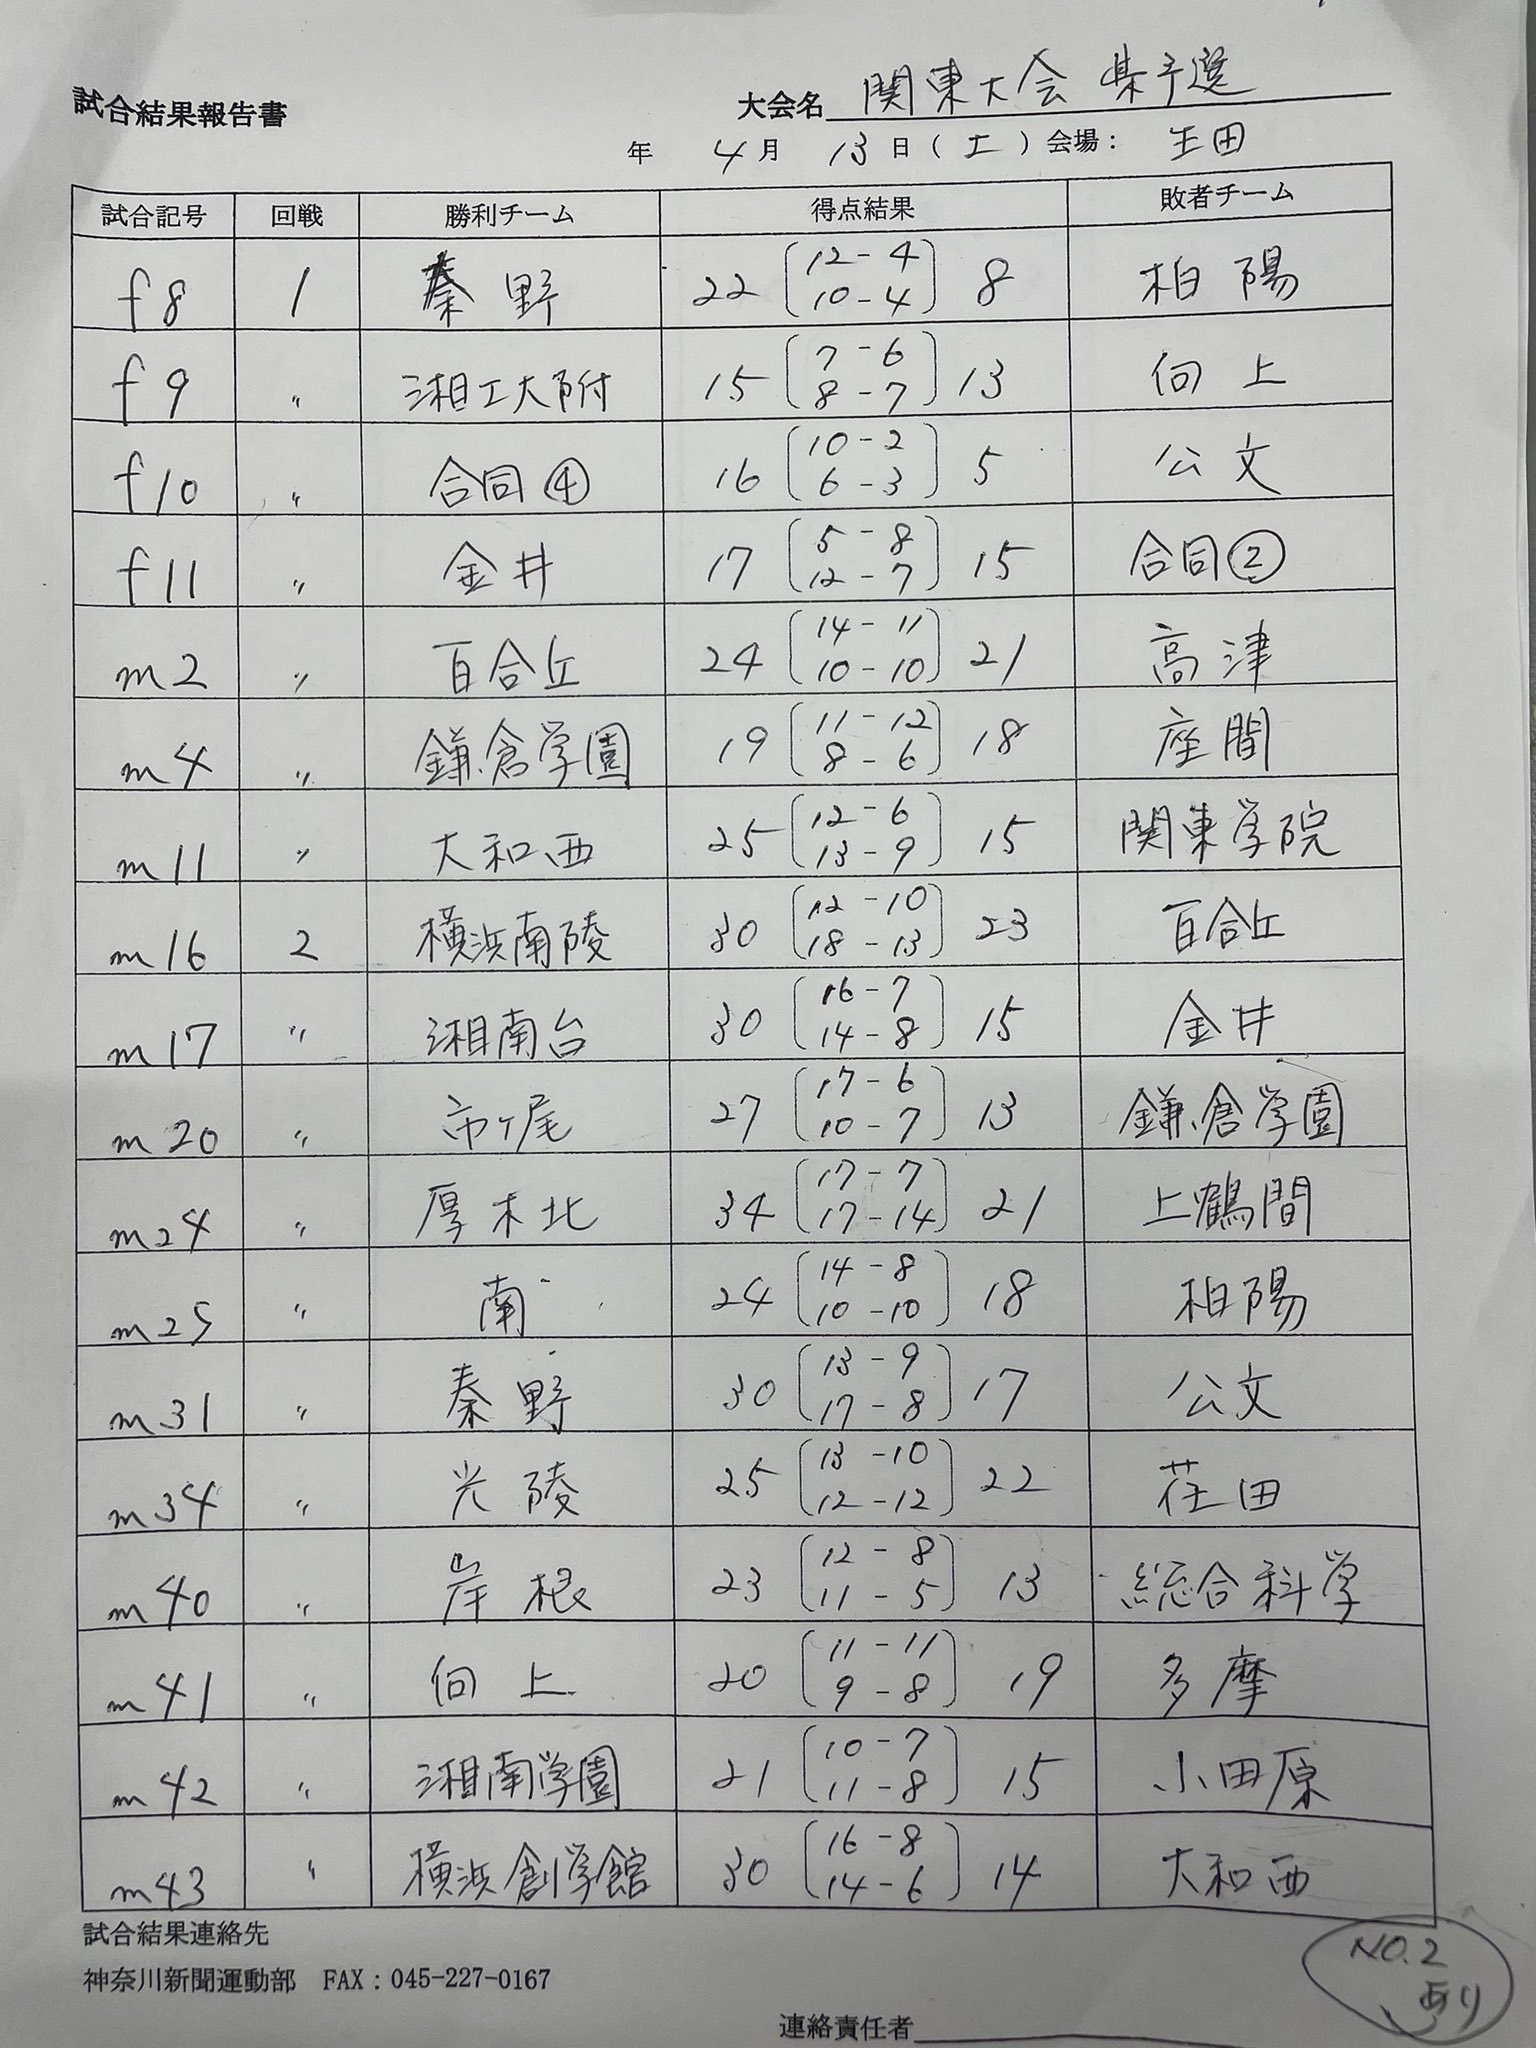 試合結果報告書
大会名 関東大会 県予選
年 4月 13日(土)会場: 生田
試合記号 回戦 勝利チーム 得点結果 敗者チーム
f8 1 秦野 22 (12-4 10-4) 8 柏陽
f9 〃 湘工大附 15 (7-6 8-7) 13 向上
f10 〃 合同④ 16 (10-2 6-3) 5 公文
f11 〃 金井 17 (5-8 12-7) 15 合同②
m2 〃 百合丘 24 (14-11 10-10) 21 高津
m4 〃 鎌倉学園 19 (11-12 8-6) 18 座間
m11 〃 大和西 25 (12-6 13-9) 15 関東学院
m16 2 横浜南陵 30 (12-10 18-13) 23 百合丘
m17 〃 湘南台 30 (16-7 14-8) 15 金井
m20 〃 市ケ尾 27 (17-6 10-7) 13 鎌倉学園
m24 〃 厚木北 34 (17-7 17-14) 21 上鶴間
m25 〃 南 24 (14-8 10-10) 18 柏陽
m31 〃 秦野 30 (13-9 17-8) 17 公文
m34 〃 光陵 25 (13-10 12-12) 22 荏田
m40 〃 岸根 23 (12-8 11-5) 13 総合科学
m41 〃 向上 20 (11-11 9-8) 19 多摩
m42 〃 湘南学園 21 (10-7 11-8) 15 小田原
m43 〃 横浜創学館 30 (16-8 14-6) 14 大和西
試合結果連絡先
神奈川新聞運動部 FAX:045-227-0167
NO.2
あり
連絡責任者